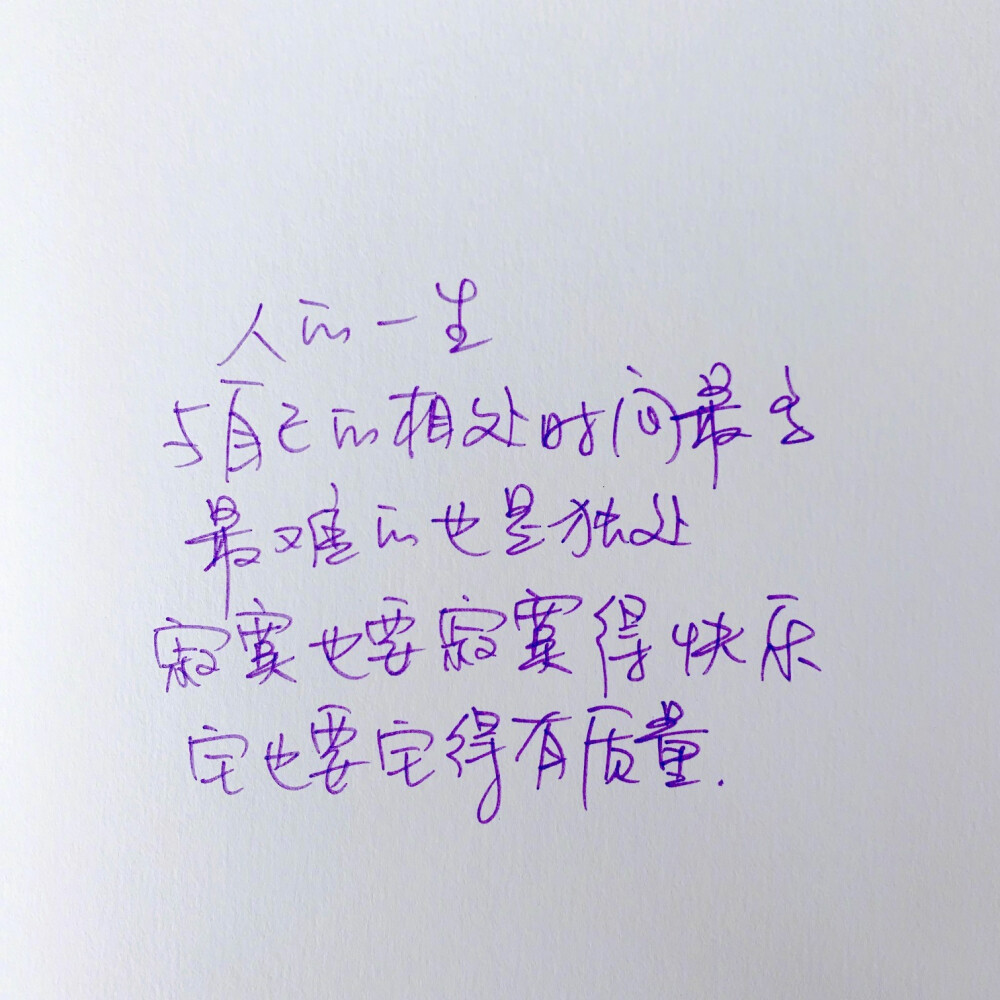 人的一生
与自己的相处时间最多
最难的也是独处
寂寞也要寂寞得快乐
宅也要宅得有质量.